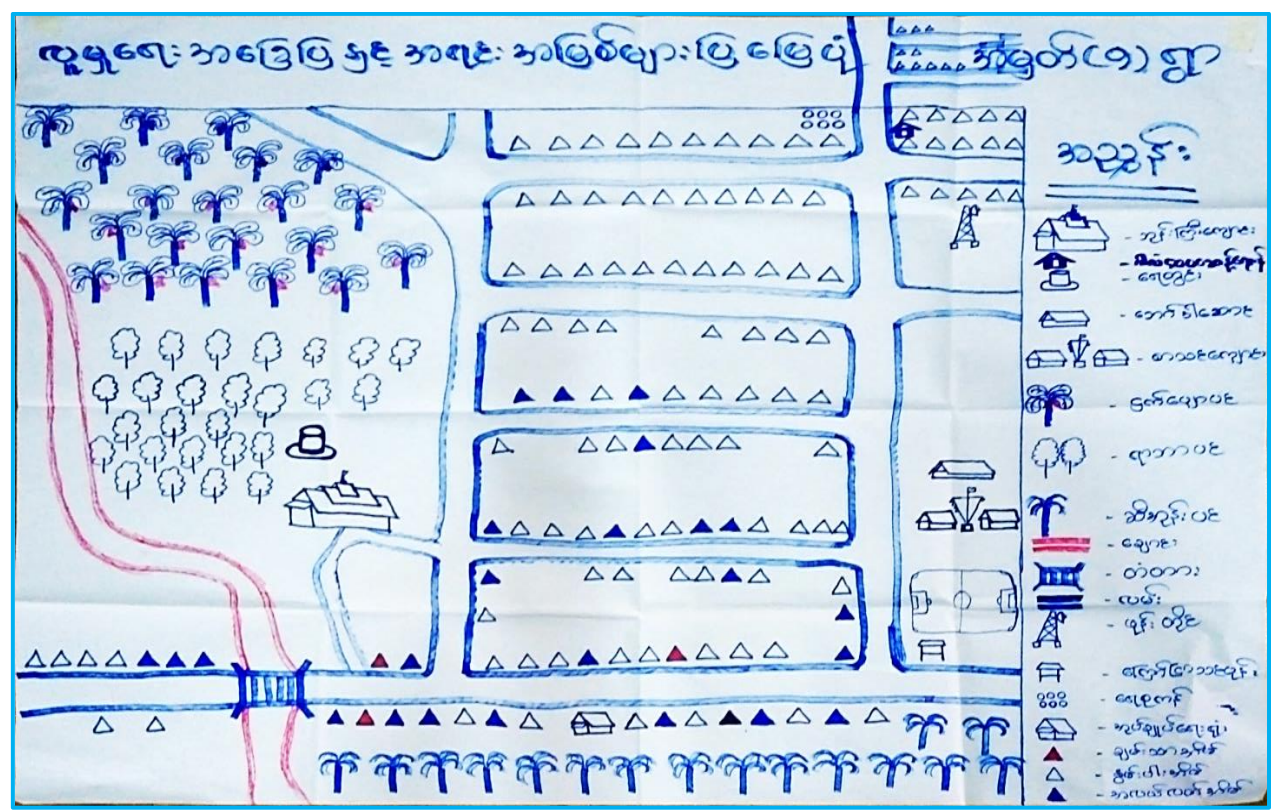 လူမှုရေး အခြေပြ နှင့် အရင်း အမြစ်များ ပြ မြေပုံ
အမှတ်(၁) ရွာ
အညွှန်း
- ဘုန်းကြီးကျောင်း
- ရေတွင်း
- ဘော်ဒါဆောင်
- စာသင်ကျောင်း
- ငှက်ပျောပင်
- ရာဘာပင်
- ဆီအုန်းပင်
- ချောင်း
- တံတား
- လမ်း
- ဖုန်းတိုင်
- ရေစုကန်
- အုပ်ချုပ်ရေးရုံး
- ချမ်းသာအိမ်
- နွမ်းပါးအိမ်
- အလယ်လတ်အိမ်